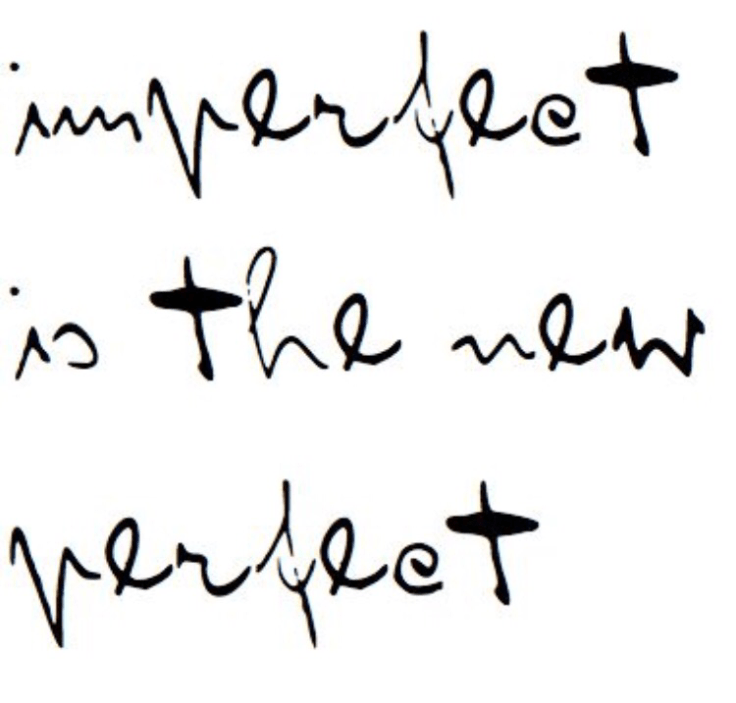 imperfect
is the new
perfect